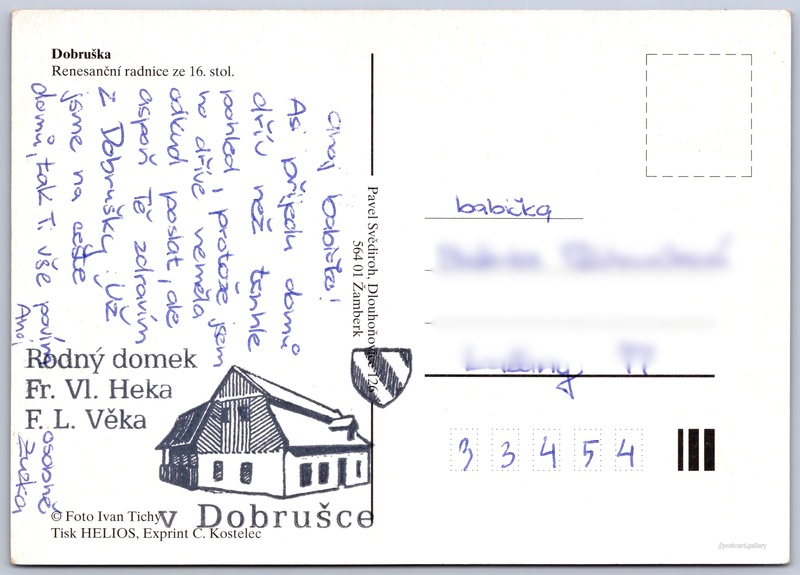 Dobruška
Renesanční radnice ze 16. stol.
Ahoj babičko!
Asi přijedu domů
dřív než tenhle
pohled, protože jsem
ho dříve neměla
odkud poslat, ale
aspoň Tě zdravím
z Dobrušky. Už
jsme na cestě
domů, tak Ti vše povím
osobně
Ahoj
Zuzka
Rodný domek
Fr. Vl. Heka
F. L. Věka
v Dobrušce
© Foto Ivan Tichý
Tisk HELIOS, Exprint Č. Kostelec
Pavel Švédiroh, Dlouhoňovice 126
564 01 Žamberk
babička
33454
//postcard.gallery